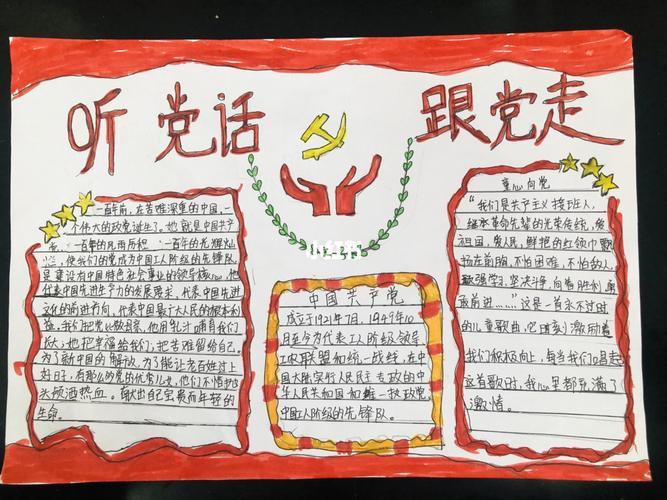 听党话 跟党走
一百年前，在苦难深重的中国，一
个伟大的政党诞生了。她就是中国共产
党。一百年的风雨历程，一百年的光辉灿
烂，使我们的党成为中国工人阶级的先锋队，
是建设有中国特色社会事业的领导核心，她
代表中国先进生产力的发展要求，代表中国先进
文化的前进方向，代表中国最广大人民的根本利
益。我们把党比做母亲，她用乳汁哺育我们
成长；她把幸福给我们；把苦难留给自己。
为了新中国的解放，为了能让老百姓过上
好日子，有那么多党的优秀儿女，他们不惜抛
头颅洒热血。献出自己宝贵而年轻的
生命。
小红书
中国共产党
成立于1921年7月，1949年10
月至今为代表工人阶级领导
工农联盟和统一战线，在中
国大陆实行人民民主专政的中
华人民共和国和唯一执政党，
中国工人阶级的先锋队。
童心向党
“我们是共产主义接班人，
继承革命先辈的光荣传统，爱
祖国，爱人民，鲜艳的红领巾飘
扬在前胸，不怕困难，不怕敌人，
顽强学习，坚决斗争，向着胜利，勇
敢前进……”这是一首永不过时
的儿童歌曲，它时刻激励着
我们积极向上，每当我们唱起
这首歌时，我心里都充满了
激情。